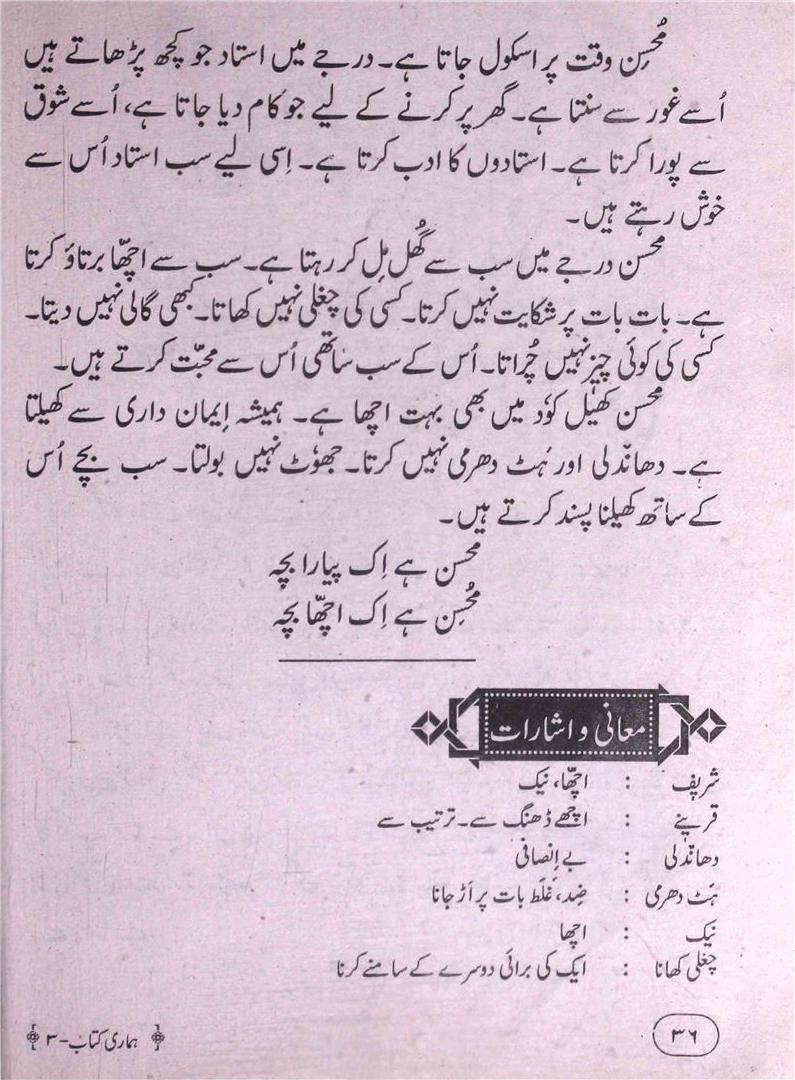 مُحسِن وقت پر اسکول جاتا ہے۔ درجے میں استاد جو کچھ پڑھاتے ہیں
اُسے غور سے سنتا ہے۔ گھر پر کرنے کے لیے جو کام دیا جاتا ہے، اُسے شوق
سے پورا کرتا ہے۔ استادوں کا ادب کرتا ہے۔ اِسی لیے سب استاد اُس سے
خوش رہتے ہیں۔
محسن درجے میں سب سے گُھل مِل کر رہتا ہے۔ سب سے اچھّا برتاؤ کرتا
ہے۔ بات بات پر شکایت نہیں کرتا۔ کسی کی چغلی نہیں کھاتا۔ کبھی گالی نہیں دیتا۔
کسی کی کوئی چیز نہیں چُراتا۔ اُس کے سب ساتھی اُس سے محبّت کرتے ہیں۔
محسن کھیل کوٗد میں بھی بہت اچھا ہے۔ ہمیشہ اِیمان داری سے کھیلتا
ہے۔ دھاندلی اور ہَٹ دھرمی نہیں کرتا۔ جھوٗٹ نہیں بولتا۔ سب بچے اُس
کے ساتھ کھیلنا پسند کرتے ہیں۔
محسن ہے اِک پیارا بچہ
مُحسِن ہے اِک اچھّا بچہ
معانی و اشارات
شریف : اچھّا، نیک
قرینے : اچھے ڈھنگ سے۔ ترتیب سے
دھاندلی : بے اِنصافی
ہَٹ دھرمی : ضِد، غَلَط بات پر اَڑ جانا
نیک : اچھا
چغلی کھانا : ایک کی برائی دوسرے کے سامنے کرنا
۳۶
ہماری کتاب-۳